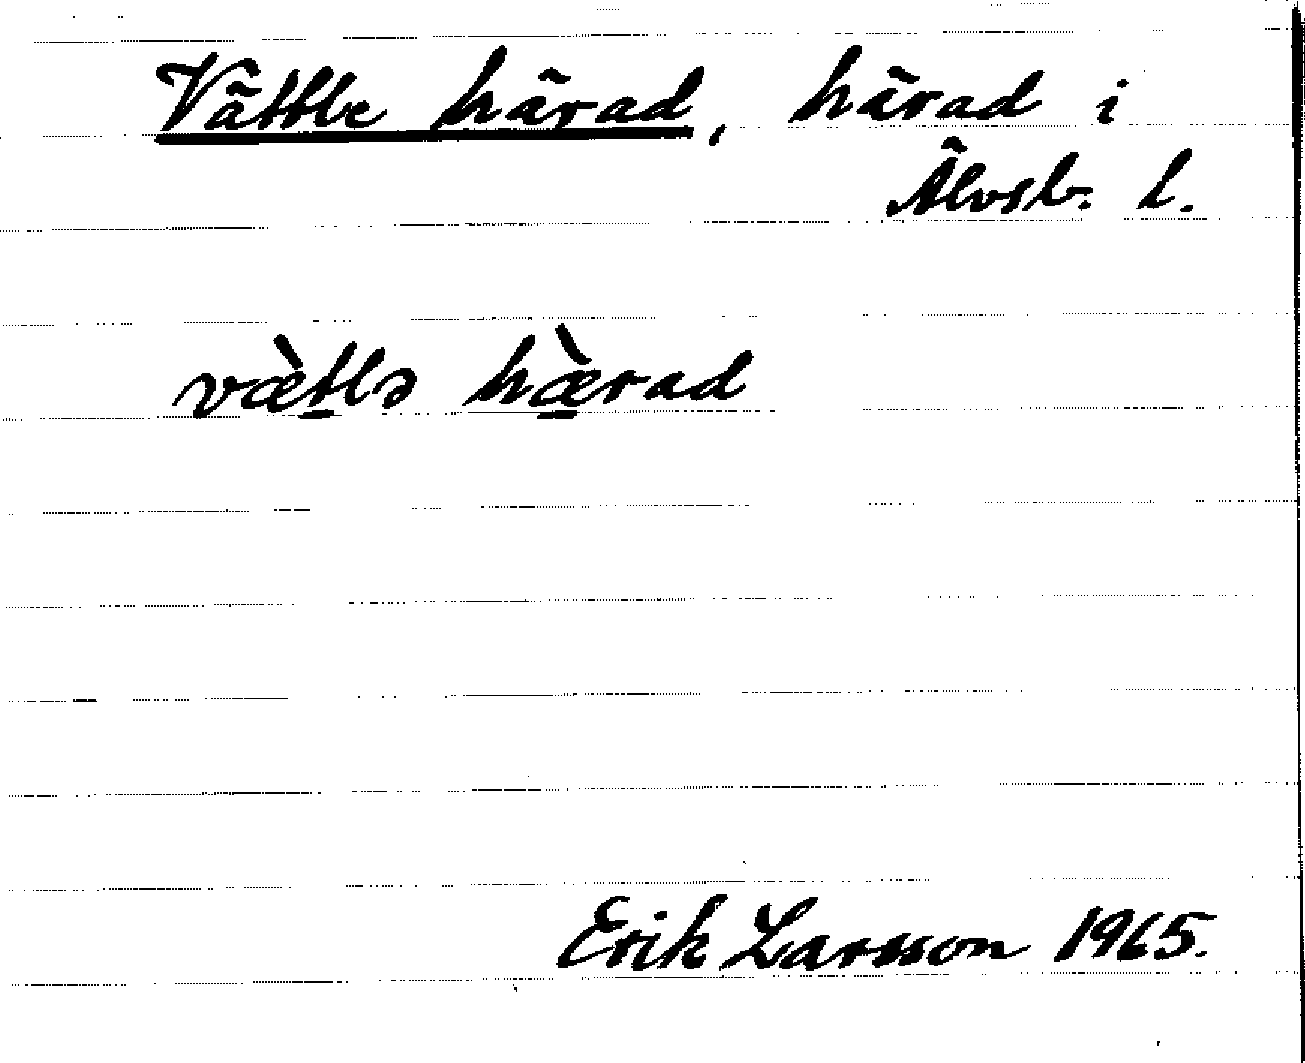 Vättle härad, härad i
Älvsb. l.
væ̀t̲lə hæ̲̀rad
Erik Larsson 1965.